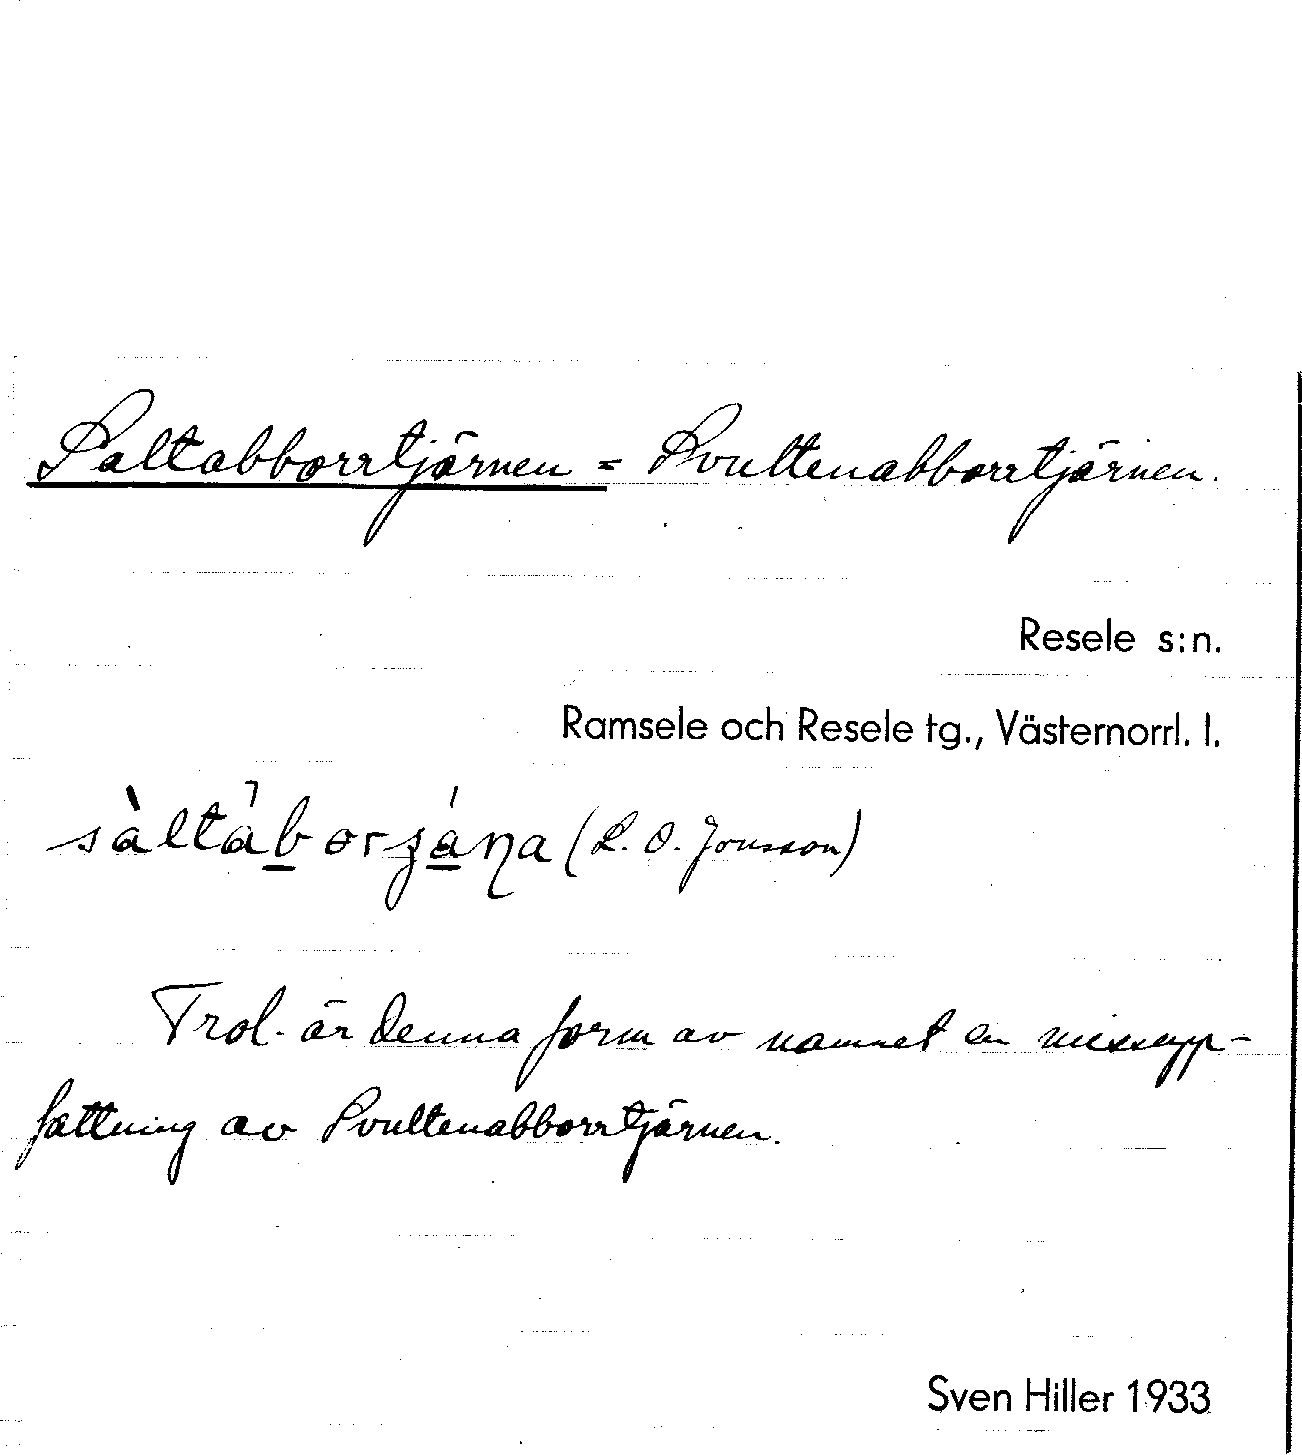 Saltabborrtjärnen = Svultenabborrtjärnen.
Resele s:n.
Ramsele och Resele tg., Västernorrl. l.
(L. O. Jonsson)
Trol. är denna form av namnet en missupp-
fattning av Svultenabborrtjärnen.
Sven Hiller 1933